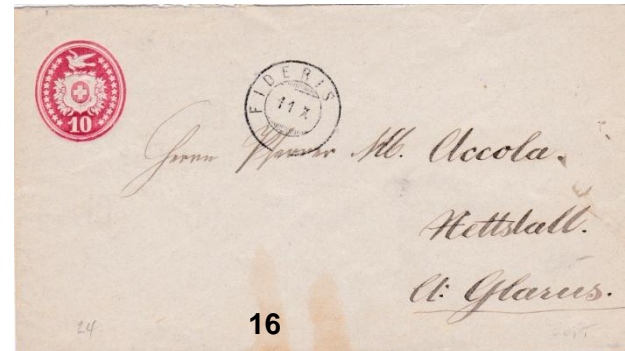 10
FIDERIS
11 X
Herrn Pfarrer M. Accola.
Nettstall.
Ct: Glarus.
24
16